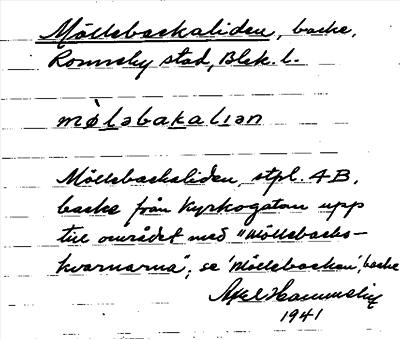 Möllebackaliden, backe,
Ronneby stad, Blek. l.
mø̀lәbakalıәn
Möllebacksliden, stpl. 4B,
backe från Kyrkogatan upp
till området med "Möllebacks-
kvarnarna", se 'Möllebacken', backe
Axel
1941